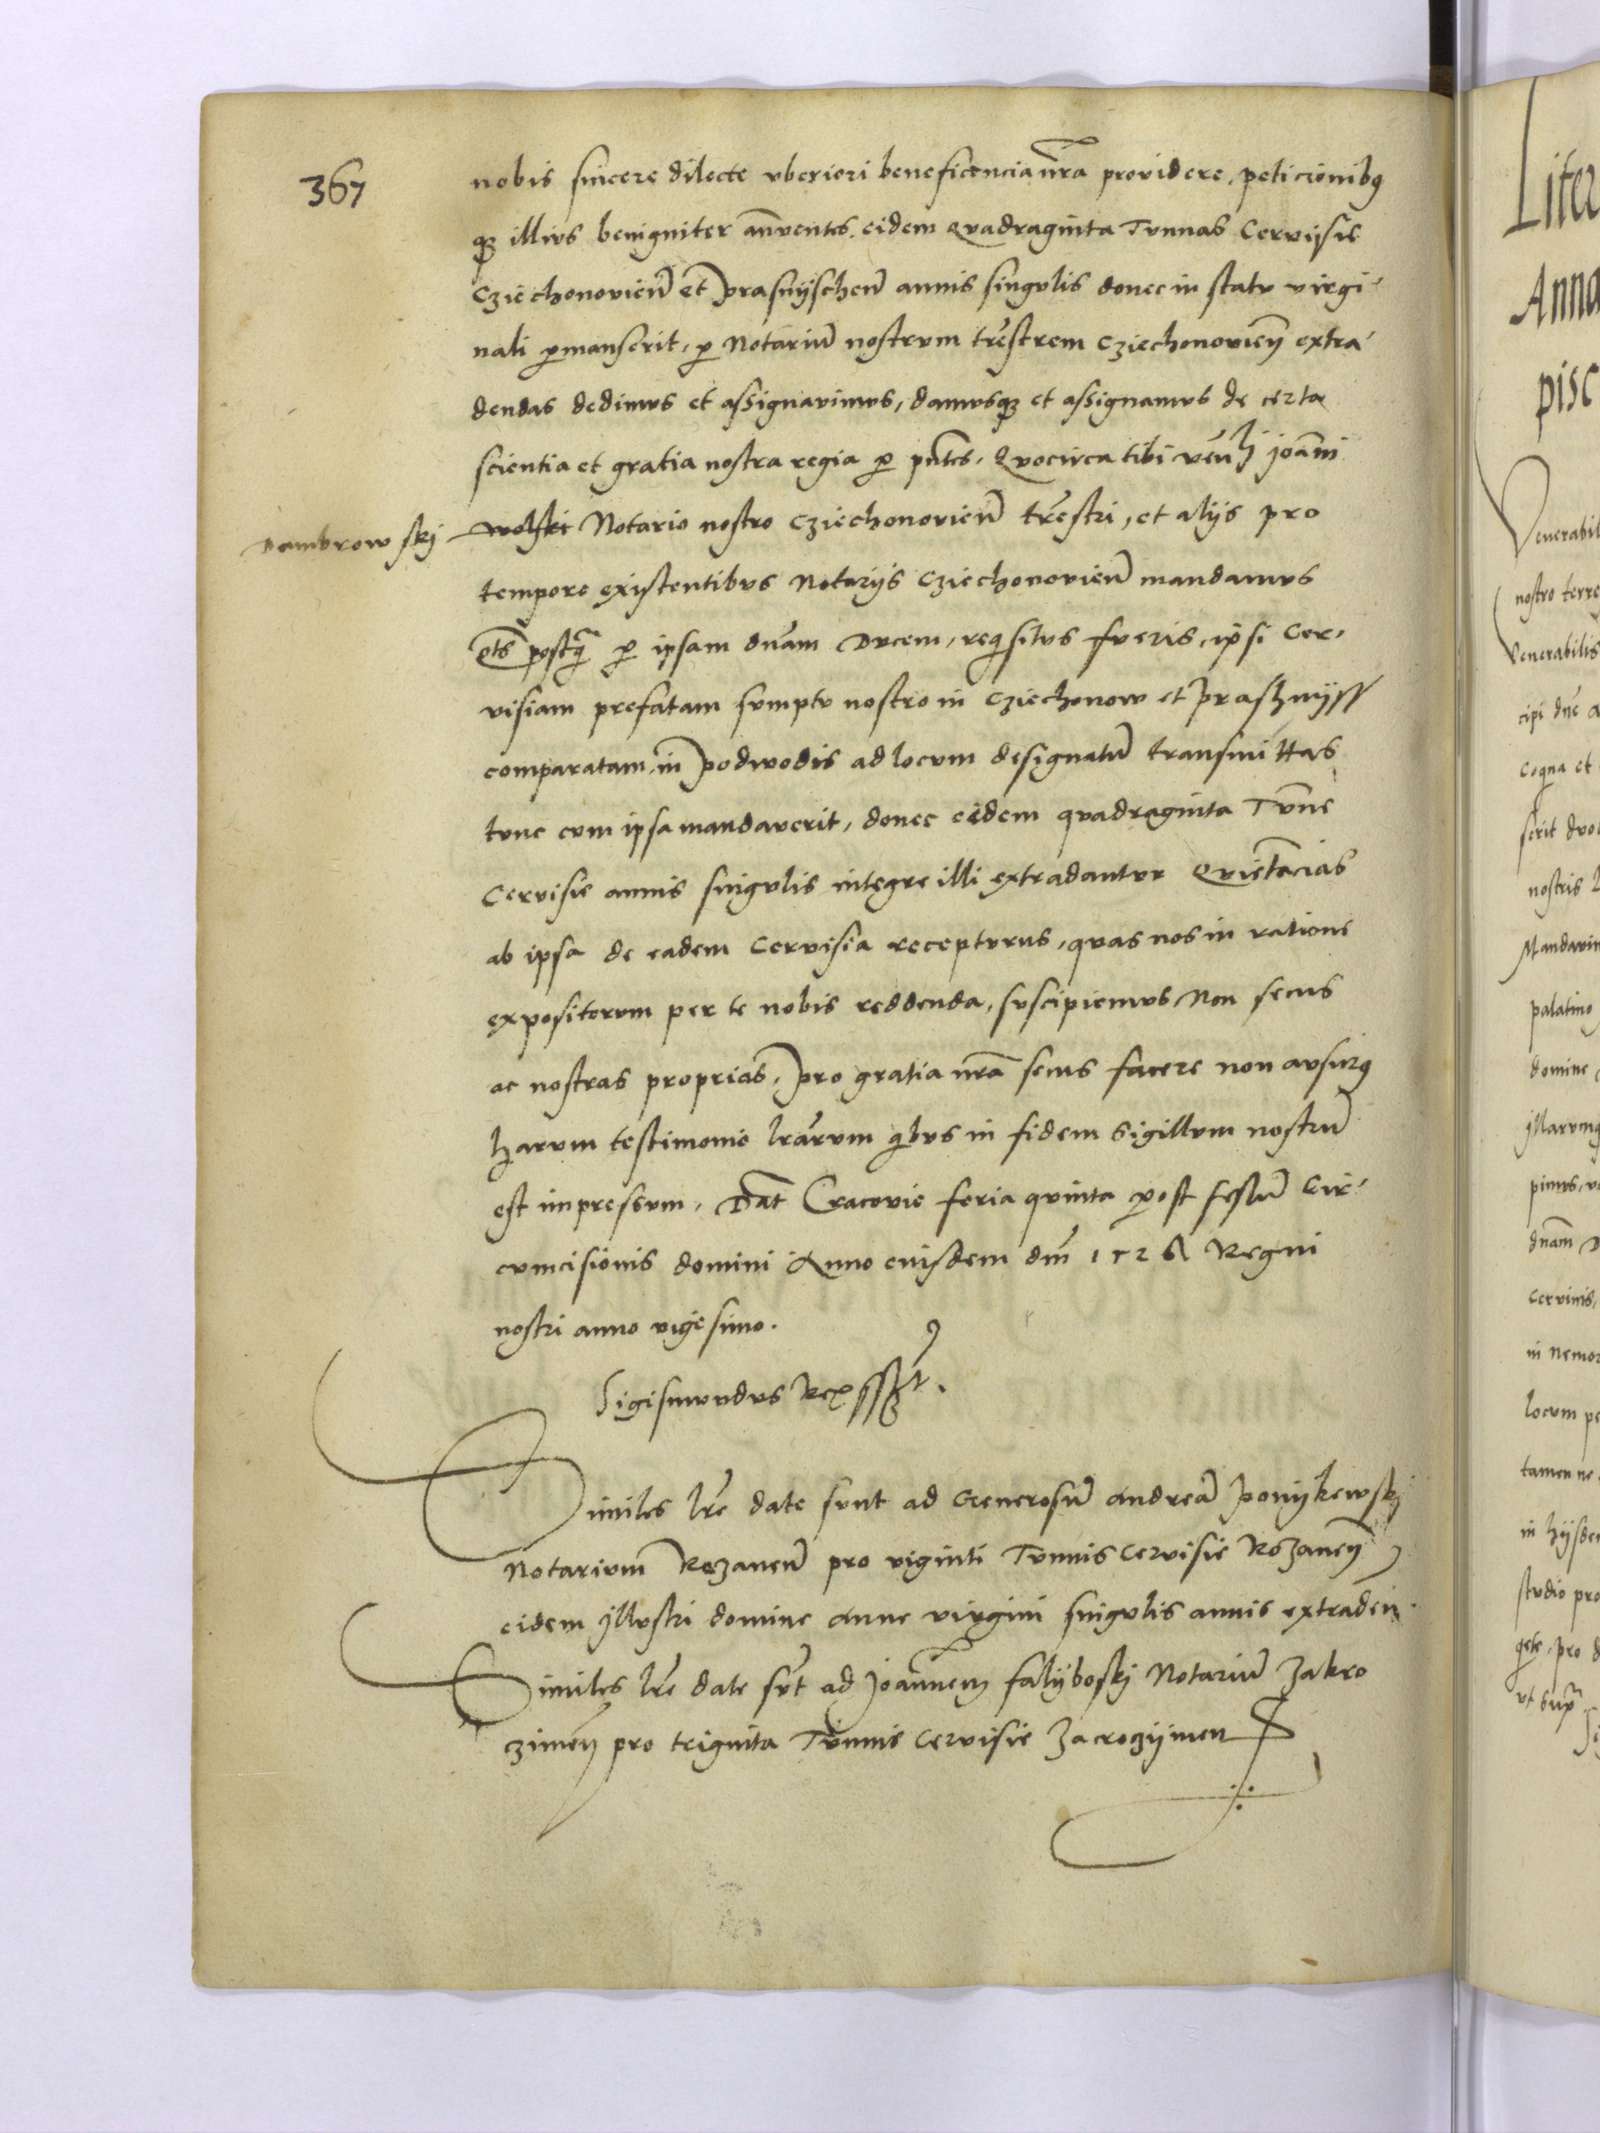 367
nobis sincere dilecte vberiori beneficencia nr̃a providere, peticionibꝰ
qꝫ illivs benigniter añventes, eidem qvadraginta Tvnnas Cervisie
Cziechonovieñ et prasnijscheñ annis singvlis donec in statv virgi-
nali ꝑmanserit, ꝑ Notariũ nostrvm tr̃estrem Cziechonovieñ extra-
dendas dedimvs et assignavimvs, damvsqꝫ et assignamvs de certa
scientia et gratia nostra regia ꝑ pñtes. Qvocirca tibi veñli joañi
Dambrowskj wolski Notario nostro Cziechonovieñ tr̃estri, et alijs pro
tempore existentibvs Notarijs Cziechonovieñ mandamvs
qts postq̃ ꝑ ipsam dñam Dvcem, reqsitvs fveris, ipsi Cer-
visiam prefatam svmptv nostro in Cziechonow et Praszmijss
comparatam, in podwodis ad locvm designatũ transmittas
tvnc cvm ipsa mandaverit, donec eedem qvadraginta Tvñe
Cervisie annis singvlis integre illi extradantvr Qvietãcias
ab ipsa de eadem Cervisia receptvrus, qvas nos in ratione
expositorvm per te nobis reddenda, svscipiemvs Non secus
ac nostras proprias, pro gratia nr̃a secus facere non avsurꝰ
Harvm testimonio lr̃arvm qbvs in fidem sigillvm nostrũ
est impressvm, Dat̃ Cracovie feria qvinta post festũ Cir-
cvmcisionis domini Anno eiusdem dñi 1526 Regni
nostri anno vigesimo.
Sigismvndvs Rex sszt.
Similes lr̃e date svnt ad Generosũ andreã ponijkewskj
Notarivm Rozaneñ pro viginti Tvnnis Cervisie Rozaneñ
eidem jllvstri domine anne virgini singvlis annis extradeñ.
Similes lr̃e date svt̃ ad joañnem falijboskj Notariũ Zakro
czimeñ pro triginta Tvnnis Cervisie Zacrozijmen
Liter
Anna
pisc
Venerabil
nostro terre
Venerabilis
cipi dñe a
coqina et
serit dvo
nostris l
Mandavim
palatino
domine
jllarvmq
pimvs, v
dñam D
Cervinis,
in nemor
locvm pe
tamen ne
in hijsdem
stvdio pro
qete, pro d
vt supr̃